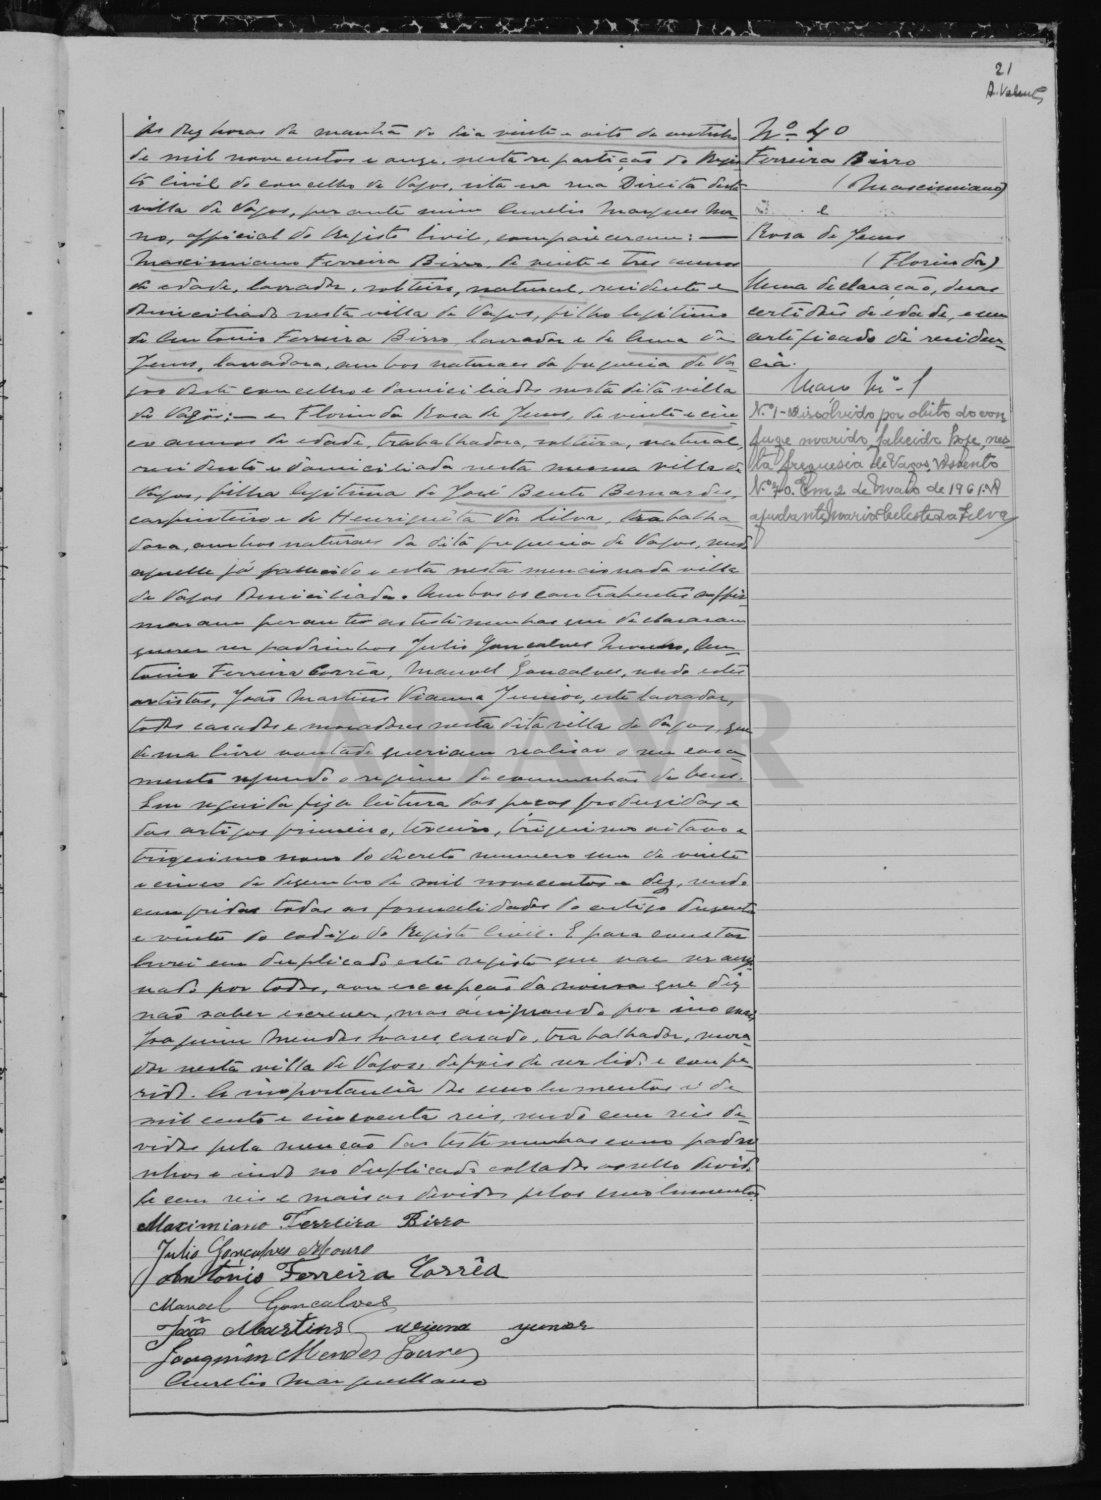 21
A. Valente
Ás dez horas da manhã do dia vinte e oito de outubro
de mil novecentos e onze, nesta repartição do Regis-
to civil do concelho de Vagos, sita na rua Direita desta
villa de Vagos, perante mim Aurelio Marques Ma-
no, official do Registo Civil, compareceram: —
Maximiano Ferreira Birro, de vinte e tres annos
de edade, lavrador, solteiro, natural, residente e
domiciliado nesta villa de Vagos, filho legitimo
de Antonio Ferreira Birro, lavrador e de Anna de
Jesus, lavradora, ambos naturaes da freguezia de Va-
gos deste concelho e domiciliados nesta dita villa
de Vagos: — e Florinda Rosa de Jesus, de vinte e cin-
co annos de edade, trabalhadora, solteira, natural,
residente e domiciliada nesta mesma villa de
Vagos, filha legitima de José Bento Bernardes,
carpinteiro e de Henriqueta da Silva, trabalha-
dora, ambos naturaes da dita freguezia de Vagos, sendo
aquelle já fallecido e esta nesta mencionada villa
de Vagos domiciliada. Ambos os contrahentes affir-
maram perante as testemunhas que declararam
querer ser padrinhos Julio Gonçalves Mouro, An-
tonio Ferreira Corrêa, Manoel Gonçalves, sendo estes
artistas, João Martins Vianna Junior, este lavrador,
todos casados e moradores nesta dita villa de Vagos, que
de sua livre vontade queriam realisar o seu casa-
mento segundo o regime da communhão de bens.
Em seguida fiz a leitura das peças produzidas e
dos artigos primeiro, terceiro, trigesimo oitavo e
trigesimo nono do decreto numero um de vinte
e cinco de dezembro de mil novecentos e dez, sendo
cumpridas todas as formalidades do artigo duzentos
e vinte do codigo do Registo Civil. E para constar
lavrei em duplicado este registo que vae ser assi-
nado por todos, com excepção da noiva que diz
não saber escrever, mas assignando por ino
Joaquim Mendes Soares casado, trabalhador, mora-
dor nesta villa de Vagos, depois de ser lido e confe-
rido. A importancia dos emolumentos é de
mil cento e cincoenta reis, sendo cem reis de-
vidos pela menção das testemunhas como padri-
nhos e indo no duplicado collados o sello devido
de cem reis e mais os devidos pelos emolumentos.
Maximiano Ferreira Birro
Julio Gonçalves Mouro
Antonio Ferreira Corrêa
Manoel Goncalves
João Martins Viana Junor
Joaquim Mendes Soares
Aurelio Marques Mano
Nº 40
Ferreira Birro
(Maximiano)
e
Rosa de Jesus
(Florinda)
Uma declaração, duas
certidões de edade, e um
certificado de residen-
cia.
Maço Nº 1
Nº 1 - Dissolvido por obito do con-
juge marido, falecido hoje, nes-
ta freguesia de Vagos. Assento
Nº 70. Em 2 de Maio de 1961. A
ajudante, Maria Celeste da Silva
ADAVR